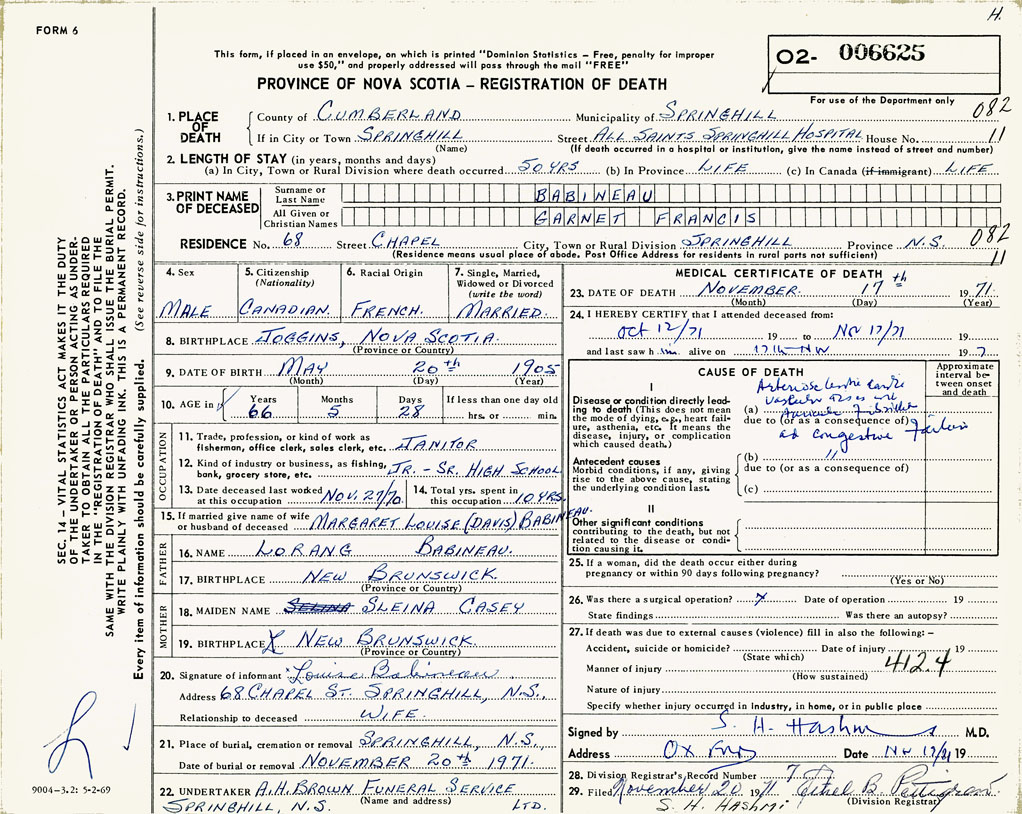 H.
FORM 6
This form, if placed in an envelope, on which is printed "Dominion Statistics – Free, penalty for improper
use $50," and properly addressed will pass through the mail "FREE"
02- 006625
PROVINCE OF NOVA SCOTIA – REGISTRATION OF DEATH
For use of the Department only
1. PLACE OF DEATH
County of CUMBERLAND Municipality of SPRINGHILL 082
If in City or Town SPRINGHILL Street ALL SAINTS SPRINGHILL HOSPITAL House No. 11
(Name) (If death occurred in a hospital or institution, give the name instead of street and number)
2. LENGTH OF STAY (in years, months and days)
(a) In City, Town or Rural Division where death occurred 50 YRS (b) In Province LIFE (c) In Canada (if immigrant) LIFE
3. PRINT NAME OF DECEASED
Surname or Last Name BABINEAU
All Given or Christian Names GARNET FRANCIS
RESIDENCE No. 68 Street CHAPEL City, Town or Rural Division SPRINGHILL Province N.S. 082
(Residence means usual place of abode. Post Office Address for residents in rural parts not sufficient) 11
4. Sex
MALE
5. Citizenship (Nationality)
CANADIAN.
6. Racial Origin
FRENCH.
7. Single, Married, Widowed or Divorced (write the word)
MARRIED.
8. BIRTHPLACE JOGGINS, NOVA SCOTIA.
(Province or Country)
9. DATE OF BIRTH MAY 20th 1905
(Month) (Day) (Year)
10. AGE in Years 66 Months 5 Days 28 If less than one day old hrs. or min.
OCCUPATION
11. Trade, profession, or kind of work as
fisherman, office clerk, sales clerk, etc. JANITOR
12. Kind of industry or business, as fishing,
bank, grocery store, etc. JR. - SR. HIGH SCHOOL
13. Date deceased last worked at this occupation NOV. 27/70
14. Total yrs. spent in this occupation 10 YRS.
15. If married give name of wife
or husband of deceased MARGARET LOUISE (DAVIS) BABINEAU.
FATHER
16. NAME LORANG BABINEAU.
17. BIRTHPLACE NEW BRUNSWICK.
(Province or Country)
MOTHER
18. MAIDEN NAME SELINA SLEINA CASEY
19. BIRTHPLACE NEW BRUNSWICK.
(Province or Country)
20. Signature of informant Louise Babineau
Address 68 CHAPEL ST. SPRINGHILL, N.S.,
Relationship to deceased WIFE.
21. Place of burial, cremation or removal SPRINGHILL, N.S.,
Date of burial or removal NOVEMBER 20th 1971.
22. UNDERTAKER A.H. BROWN FUNERAL SERVICE
(Name and address)
SPRINGHILL, N.S. LTD.
MEDICAL CERTIFICATE OF DEATH
23. DATE OF DEATH NOVEMBER. 17th 1971.
(Month) (Day) (Year)
24. I HEREBY CERTIFY that I attended deceased from:
Oct 12/71 19 to Nov 17/71
and last saw h im alive on 17th Nov 197
CAUSE OF DEATH
Approximate interval between onset and death
I
Disease or condition directly leading to death (This does not mean the mode of dying, e.g., heart failure, asthenia, etc. It means the disease, injury, or complication which caused death.)
(a)
due to (or as a consequence of)
congestive failure
Antecedent causes
Morbid conditions, if any, giving rise to the above cause, stating the underlying condition last.
(b) "
due to (or as a consequence of)
(c)
II
Other significant conditions
contributing to the death, but not related to the disease or condition causing it.
25. If a woman, did the death occur either during
pregnancy or within 90 days following pregnancy?
(Yes or No)
26. Was there a surgical operation? X Date of operation 19
State findings Was there an autopsy?
27. If death was due to external causes (violence) fill in also the following: –
Accident, suicide or homicide? Date of injury 19
(State which) 412.4
Manner of injury
(How sustained)
Nature of injury
Specify whether injury occurred in industry, in home, or in public place
Signed by S. H. Hashmi M.D.
Address Oxford Date Nov 17/71 19
28. Division Registrar's Record Number 7
29. Filed November 20 1971 Ethel B. Pettigrew
(Division Registrar)
S. H. HASHMI
SEC. 14 – VITAL STATISTICS ACT MAKES IT THE DUTY
OF THE UNDERTAKER OR PERSON ACTING AS UNDER-
TAKER TO OBTAIN ALL THE PARTICULARS REQUIRED
IN THE "REGISTRATION OF DEATH" AND TO FILE THE
SAME WITH THE DIVISION REGISTRAR WHO SHALL ISSUE THE BURIAL PERMIT.
WRITE PLAINLY WITH UNFADING INK. THIS IS A PERMANENT RECORD.
Every item of information should be carefully supplied. (See reverse side for instructions.)
9004-3.2: 5-2-69